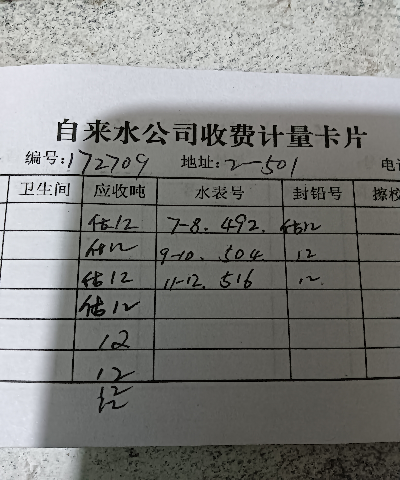 自来水公司收费计量卡片
编号:172709 地址:2-501 电
卫生间 应收吨 水表号 封铅号 擦校
估12 7-8. 492. 估12
估12 9-10. 504 12
估12 11-12. 516 12
估12
12
12
12